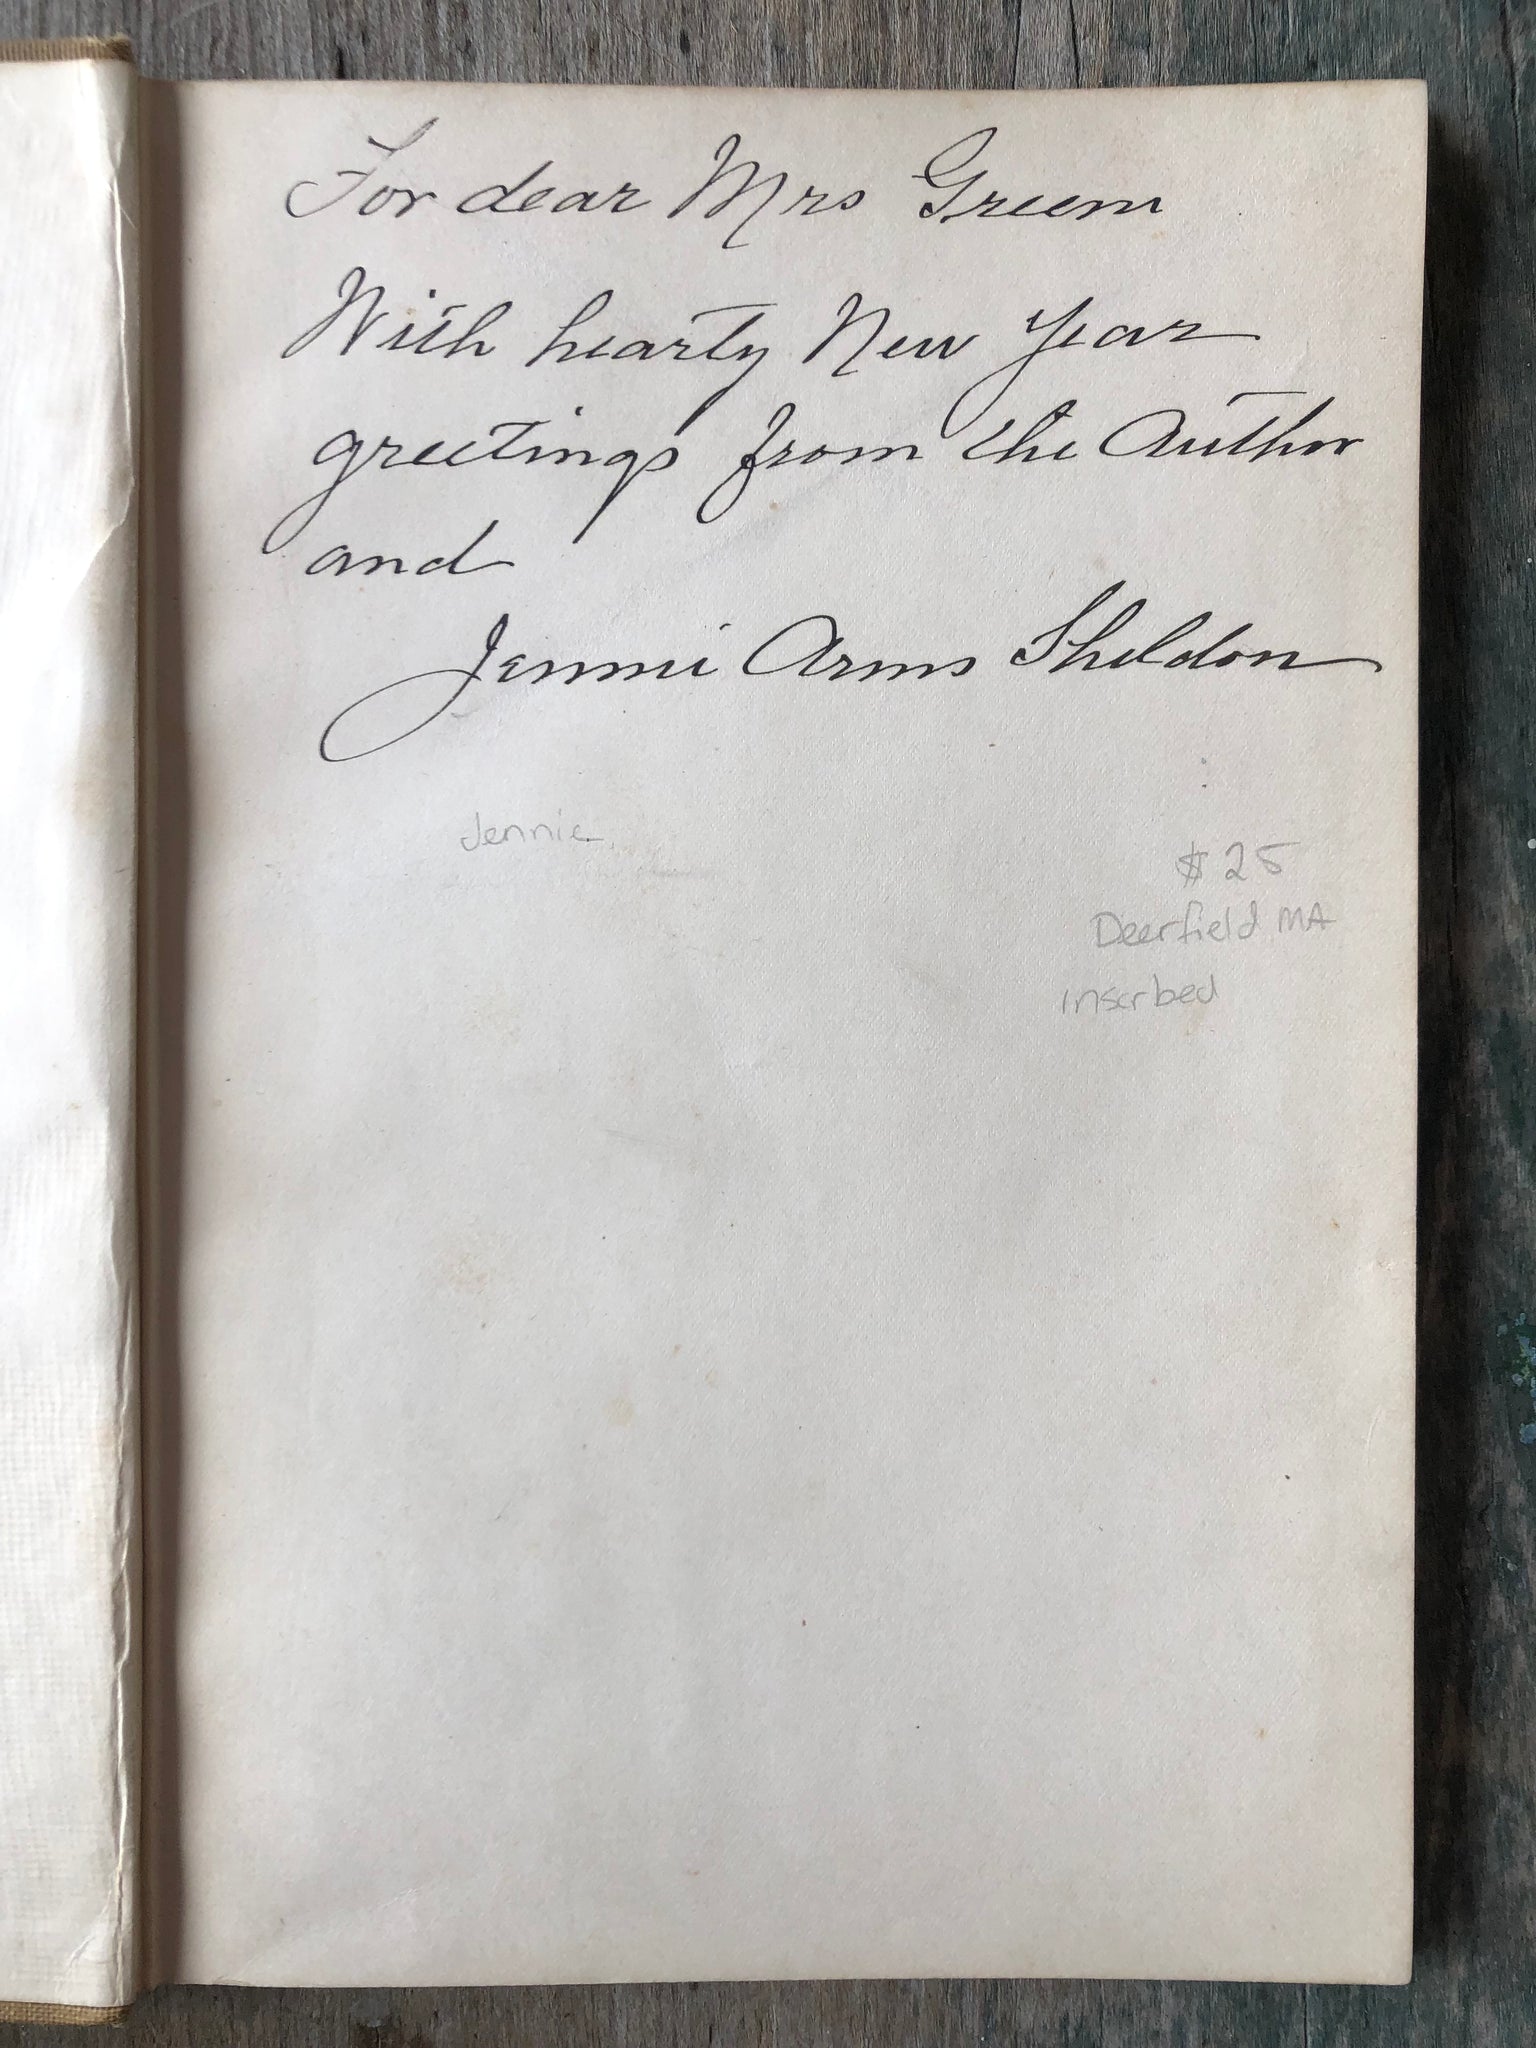 For dear Mrs Green
With hearty New Year
greetings from the Author
and
Jennie Arms Sheldon
Jennie
$25
Deerfield MA
inscrbed